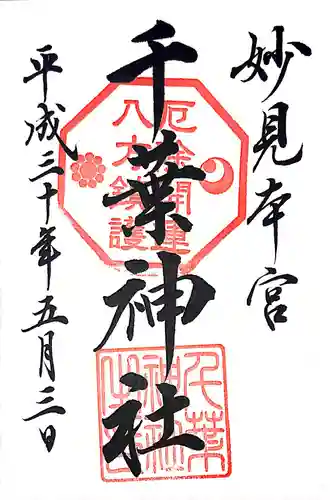 妙見本宮
千葉神社
厄除開運
八方鎮護
千葉神社
平成三十年五月三日